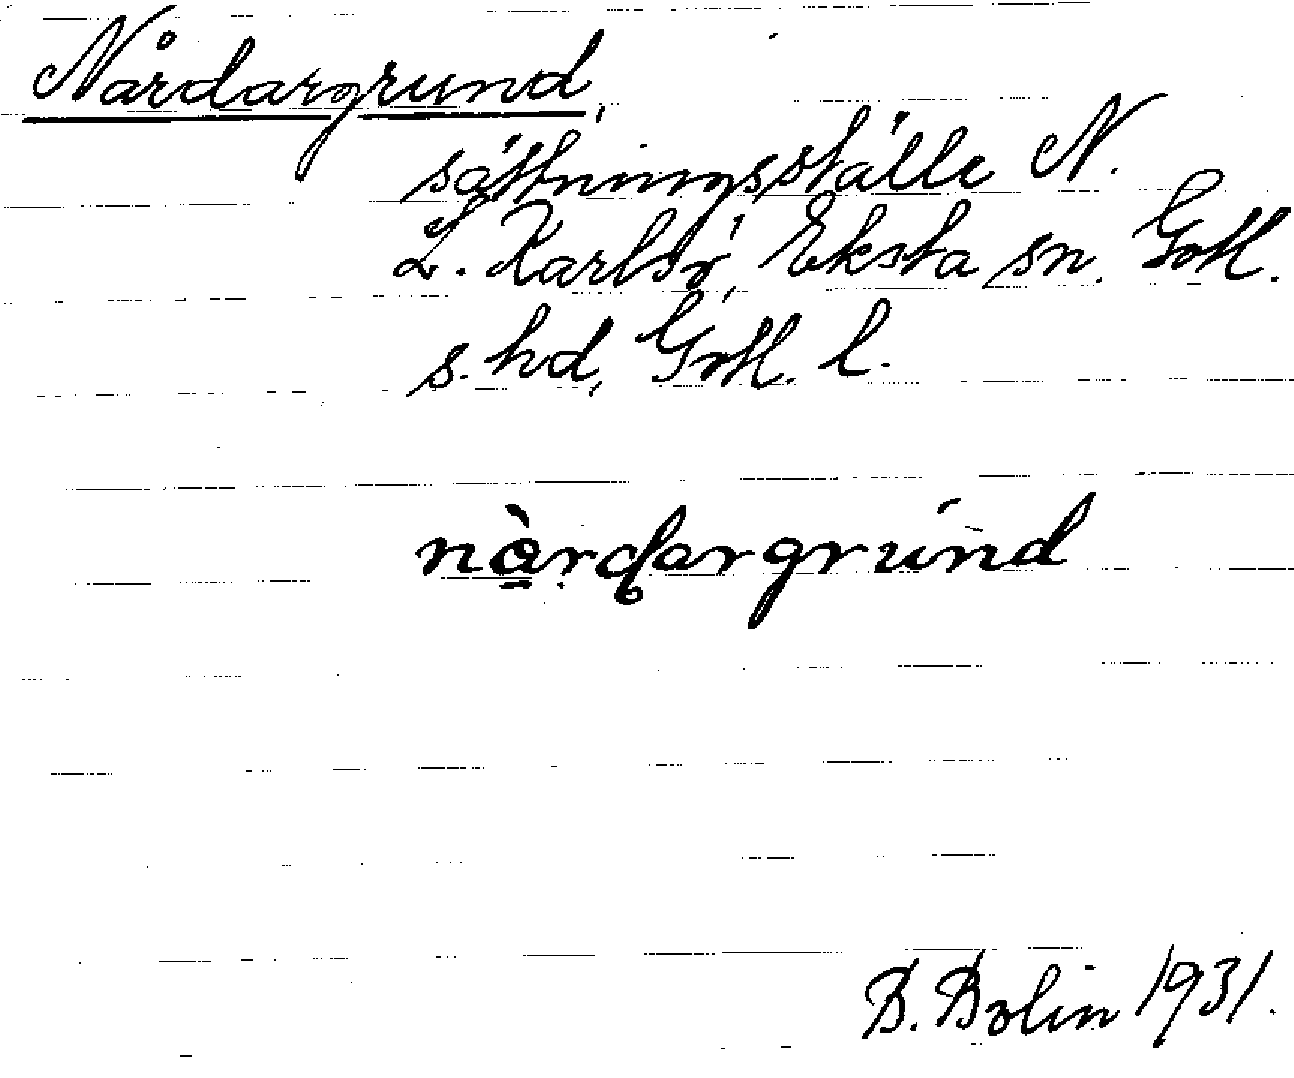 Nårdargrund,
sättningsställe N.
L. Karlsö, Eksta sn. Gotl.
s. hd, Gotl. l.
nàrdargrund
B. Bolin 1931.